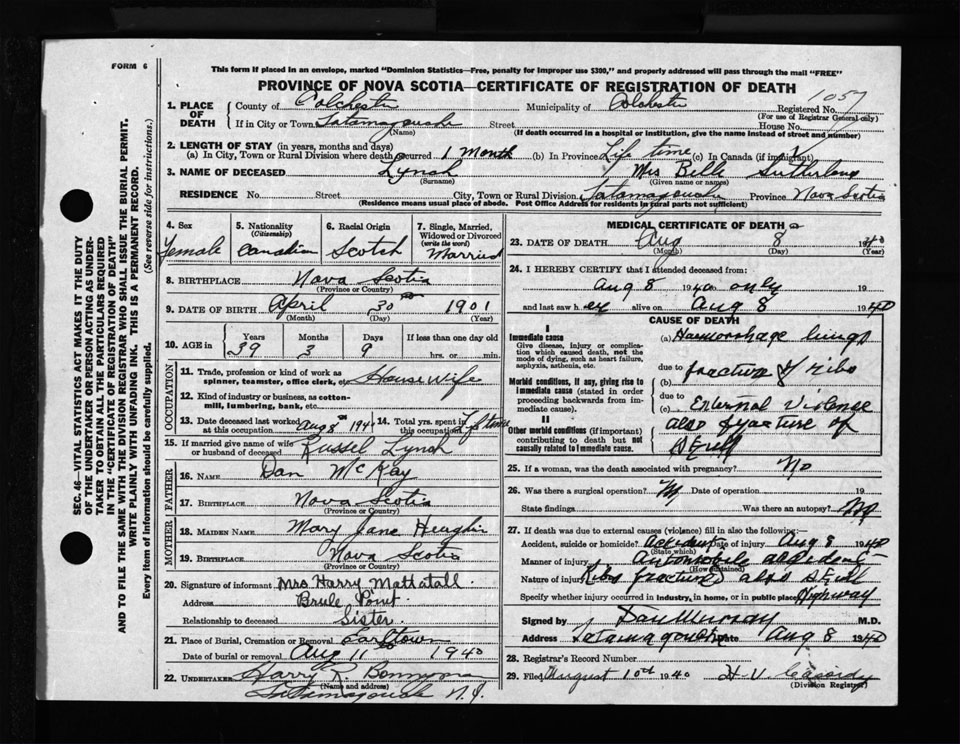 FORM 6
This form if placed in an envelope, marked "Dominion Statistics—Free, penalty for improper use $300," and properly addressed will pass through the mail "FREE"
PROVINCE OF NOVA SCOTIA—CERTIFICATE OF REGISTRATION OF DEATH
1. PLACE OF DEATH
County of Colchester Municipality of Colchester Registered No. 1057
(For use of Registrar General only)
If in City or Town Tatamagouche Street House No.
(Name) (If death occurred in a hospital or institution, give the name instead of street and number)
2. LENGTH OF STAY (in years, months and days)
(a) In City, Town or Rural Division where death occurred 1 Month (b) In Province Life time (c) In Canada (if immigrant)
3. NAME OF DECEASED Lynch Mrs Bell Sutherland
(Surname) (Given name or names)
RESIDENCE No. Street City, Town or Rural Division Tatamagouche Province Nova Scotia
(Residence means usual place of abode. Post Office Address for residents in rural parts not sufficient)
4. Sex Female
5. Nationality (Citizenship) Canadian
6. Racial Origin Scotch
7. Single, Married, Widowed or Divorced (write the word) Married
8. BIRTHPLACE Nova Scotia
(Province or Country)
9. DATE OF BIRTH April 30 1901
(Month) (Day) (Year)
10. AGE in Years Months Days If less than one day old
39 3 9 hrs. or min.
OCCUPATION
11. Trade, profession or kind of work as spinner, teamster, office clerk, etc. House Wife
12. Kind of industry or business, as cotton-mill, lumbering, bank, etc.
13. Date deceased last worked at this occupation Aug 8 194 14. Total yrs. spent in this occupation
15. If married give name of wife or husband of deceased Russel Lynch
FATHER
16. NAME Dan McKay
17. BIRTHPLACE Nova Scotia
(Province or Country)
MOTHER
18. MAIDEN NAME Mary Jane
19. BIRTHPLACE Nova Scotia
(Province or Country)
20. Signature of informant Mrs Harry Mattatall
Address Brule Point
Relationship to deceased Sister
21. Place of Burial, Cremation or Removal Earltown
Date of burial or removal Aug 11 1940
22. UNDERTAKER Harry R.
(Name and address)
Tatamagouche N.S.
MEDICAL CERTIFICATE OF DEATH
23. DATE OF DEATH Aug 8 1940
(Month) (Day) (Year)
24. I HEREBY CERTIFY that I attended deceased from
Aug 8 1940 only 19
and last saw her alive on Aug 8 1940
CAUSE OF DEATH
Immediate cause
Give disease, injury or complication which caused death, not the mode of dying, such as heart failure, asphyxia, asthenia, etc.
(a) Haemorrhage lungs
due to
Morbid conditions, if any, giving rise to immediate cause (stated in order proceeding backwards from immediate cause).
(b) fracture of ribs
due to
(c) External Violence
Other morbid conditions (if important) contributing to death but not causally related to immediate cause.
also fracture of
Skull
25. If a woman, was the death associated with pregnancy? No
26. Was there a surgical operation? No Date of operation 19
State findings Was there an autopsy? No
27. If death was due to external causes (violence) fill in also the following:—
Accident, suicide or homicide? Accident Date of injury Aug 8 1940
(State which)
Manner of injury Automobile accident
(How sustained)
Nature of injury Ribs fractured also Skull
Specify whether injury occurred in industry, in home, or in public place Highway
Signed by Dan Murray M.D.
Address Tatamagouche Date Aug 8 1940
28. Registrar's Record Number
29. Filed August 10 1940 H. V. Cassidy
(Division Registrar)
SEC. 46—VITAL STATISTICS ACT MAKES IT THE DUTY
OF THE UNDERTAKER OR PERSON ACTING AS UNDER-
TAKER TO OBTAIN ALL THE PARTICULARS REQUIRED
IN THE "CERTIFICATE OF REGISTRATION OF DEATH"
AND TO FILE THE SAME WITH THE DIVISION REGISTRAR WHO SHALL ISSUE THE BURIAL PERMIT.
WRITE PLAINLY WITH UNFADING INK. THIS IS A PERMANENT RECORD.
Every item of information should be carefully supplied. (See reverse side for instructions.)